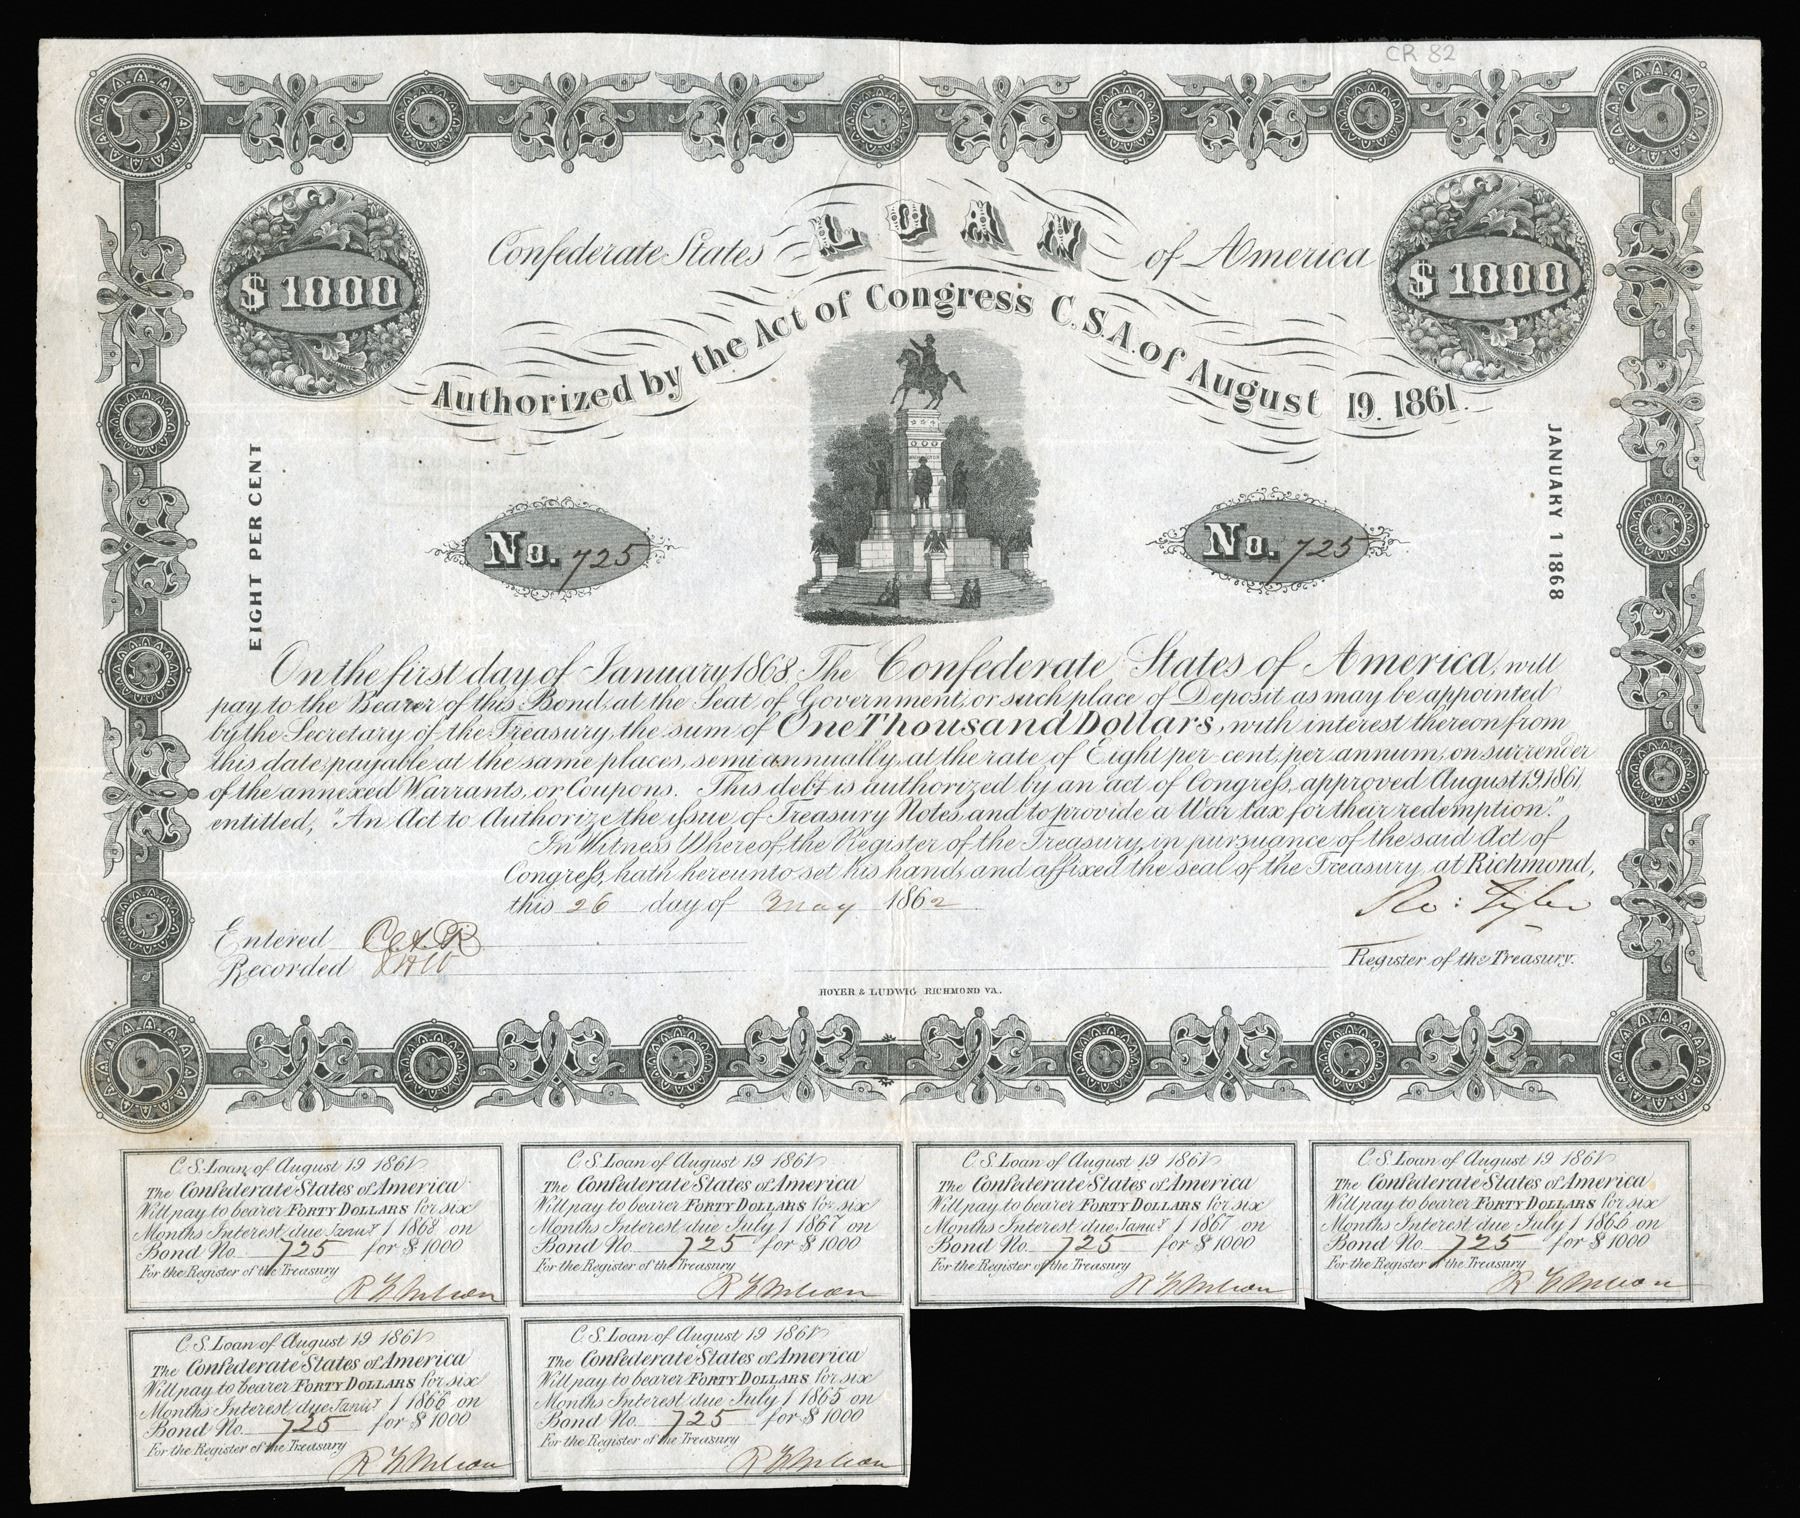 CR 82
Confederate States LOAN of America
$ 1000
$ 1000
Authorized by the Act of Congress C.S.A. of August 19. 1861.
EIGHT PER CENT
JANUARY 1 1868
No. 725
No. 725
On the first day of January 1868, The Confederate States of America, will
pay to the Bearer of this Bond, at the Seat of Government, or such place of Deposit as may be appointed
by the Secretary of the Treasury, the sum of One Thousand Dollars, with interest thereon from
this date, payable at the same places, semi annually, at the rate of Eight per cent, per annum, on surrender
of the annexed Warrants, or Coupons. This debt is authorized by an act of Congress, approved August 19, 1861,
entitled, "An Act to Authorize the issue of Treasury Notes, and to provide a War tax for their redemption."
In Witness Whereof the Register of the Treasury, in pursuance of the said Act of
Congress, hath hereunto set his hand, and affixed the seal of the Treasury, at Richmond,
this 26 day of May 1862
Ro: Tyler
Entered
Recorded
Register of the Treasury.
HOYER & LUDWIG RICHMOND VA.
C.S. Loan of August 19 1861
The Confederate States of America
Will pay to bearer FORTY DOLLARS for six
Months Interest, due Janu.y 1 1868 on
Bond No. 725 for $ 1000
For the Register of the Treasury
C.S. Loan of August 19 1861
The Confederate States of America
Will pay to bearer FORTY DOLLARS for six
Months Interest due July 1 1867 on
Bond No. 725 for $ 1000
For the Register of the Treasury
C.S. Loan of August 19 1861
The Confederate States of America
Will pay to bearer FORTY DOLLARS for six
Months Interest due Janu.y 1 1867 on
Bond No. 725 for $ 1000
For the Register of the Treasury
C.S. Loan of August 19 1861
The Confederate States of America
Will pay to bearer FORTY DOLLARS for six
Months Interest due July 1 1866 on
Bond No. 725 for $ 1000
For the Register of the Treasury
C.S. Loan of August 19 1861
The Confederate States of America
Will pay to bearer FORTY DOLLARS for six
Months Interest, due Janu.y 1 1866 on
Bond No. 725 for $ 1000
For the Register of the Treasury
C.S. Loan of August 19 1861
The Confederate States of America
Will pay to bearer FORTY DOLLARS for six
Months Interest, due July 1 1865 on
Bond No. 725 for $ 1000
For the Register of the Treasury